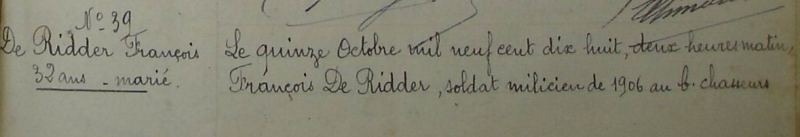 Nº 39
De Ridder François
32 ans - marié.
Le quinze Octobre mil neuf cent dix huit, deux heures matin,
François De Ridder, soldat milicien de 1906 au 6. chasseurs